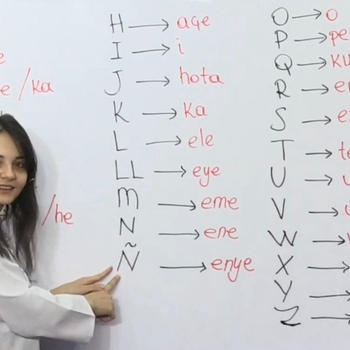 /ka
/he
H → açe
I → i
J → hota
K → ka
L → ele
LL → eye
M → eme
N → ene
Ñ → enye
O → o
P → pe
Q → ku
R →
S →
T → te
U →
V →
W →
X →
Y →
Z →